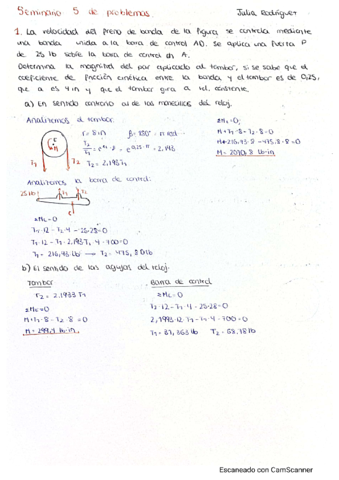 Seminario 5 de problemas. Julia Rodríguez
1. La velocidad del freno de banda de la figura se controla mediante
una banda unida a la barra de control AD. Se aplica una fuerza P
de 25 lb sobre la barra de control en A.
Determina la magnitud del par aplicado al tambor, si se sabe que el
coeficiente de fricción cinética entre la banda y el tambor es de 0,25,
que a es 4 in y que el tambor gira a vel. constante.
a) En sentido contrario a de las manecillas del reloj.
Analicemos el tambor:
r = 8 in
T2 = 2,193 T1
T1
T2
ΣMc = 0
M + T1 · 8 - T2 · 8 = 0
M + 216,93 · 8 - 475,8 · 8 = 0
Analicemos la barra de control:
25 lb
ΣMc = 0
T1 · 12 - T2 · 4 - 25 · 28 = 0
T1 · 12 - T1 · 2,193 · 4 - 700 = 0
b) El sentido de las agujas del reloj.
Tambor
T2 = 2,1933 T1
ΣME = 0
M + T1 · 8 - T2 · 8 = 0
Barra de control
ΣMc = 0
T2 · 12 - T1 · 4 - 25 · 28 = 0
2,1993 · 12 T1 - T1 · 4 - 700 = 0
Escaneado con CamScanner